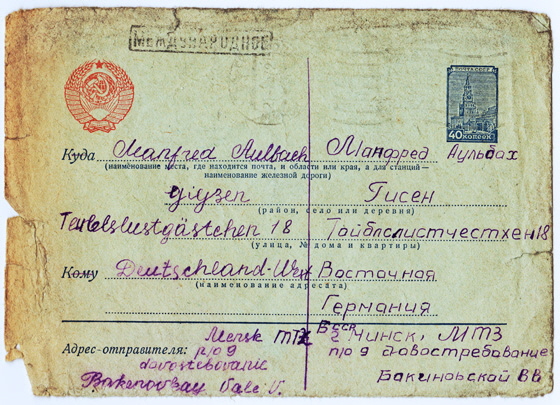 МЕЖДУНАРОДНОЕ
ПОЧТА СССР
40 КОПЕЕК
Куда Manfred Aulbach Манфред Аульбах
(наименование места, где находится почта, и области или края, а для станций —
наименование железной дороги)
Гисен
(район, село или деревня)
18 Тайбслистчестхен 18
(улица, № дома и квартиры)
Кому Deutschland-West Восточная
(наименование адресата)
Германия
Mensk МТЗ БССР г Минск, МТЗ
Адрес-отправителя: p/o 9 п/о 9 Довостребование
dovostebovanie
Vale V. Бакиновской ВВ